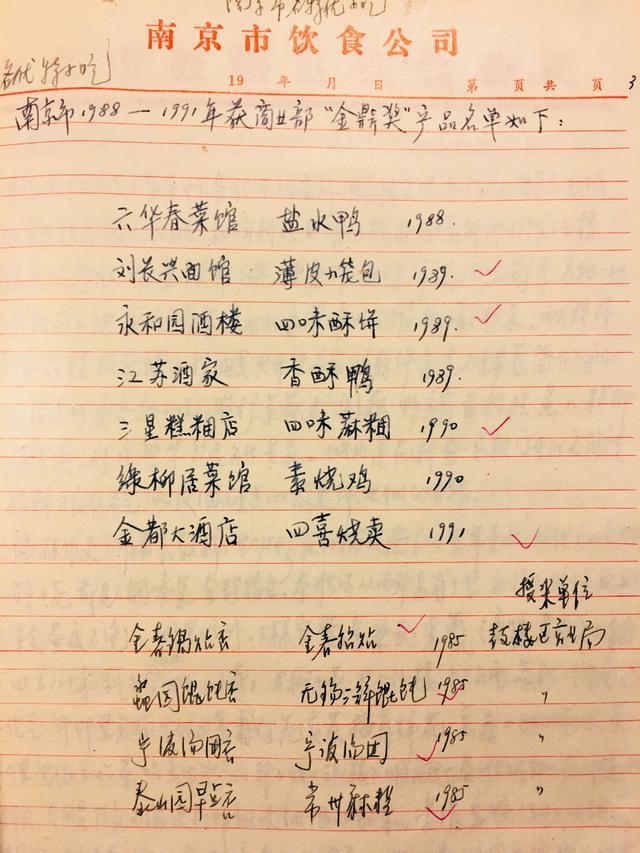 南京市名特优小吃
名优特小吃
南京市饮食公司
19 年 月 日 第 页共 页 3
南京市1988—1991年获商业部“金鼎奖”产品名单如下：
六华春菜馆 盐水鸭 1988.
刘长兴面馆 薄皮小笼包 1989. ✓
永和园酒楼 四味酥饼 1989. ✓
江苏酒家 香酥鸭 1989.
三星糕粡店 四味蔴粡 1990 ✓
绿柳居菜馆 素烧鸡 1990
金都大酒店 四喜烧卖 1991 ✓
授奖单位
金春锅贴店 金春锅贴 ✓ 1985 鼓楼区商业局
园馄饨店 无锡三鲜馄饨 1985 ✓ 〃
宁波汤团店 宁波汤团 ✓ 1985 〃
泰山园早点店 常州麻糕 ✓ 1985 〃